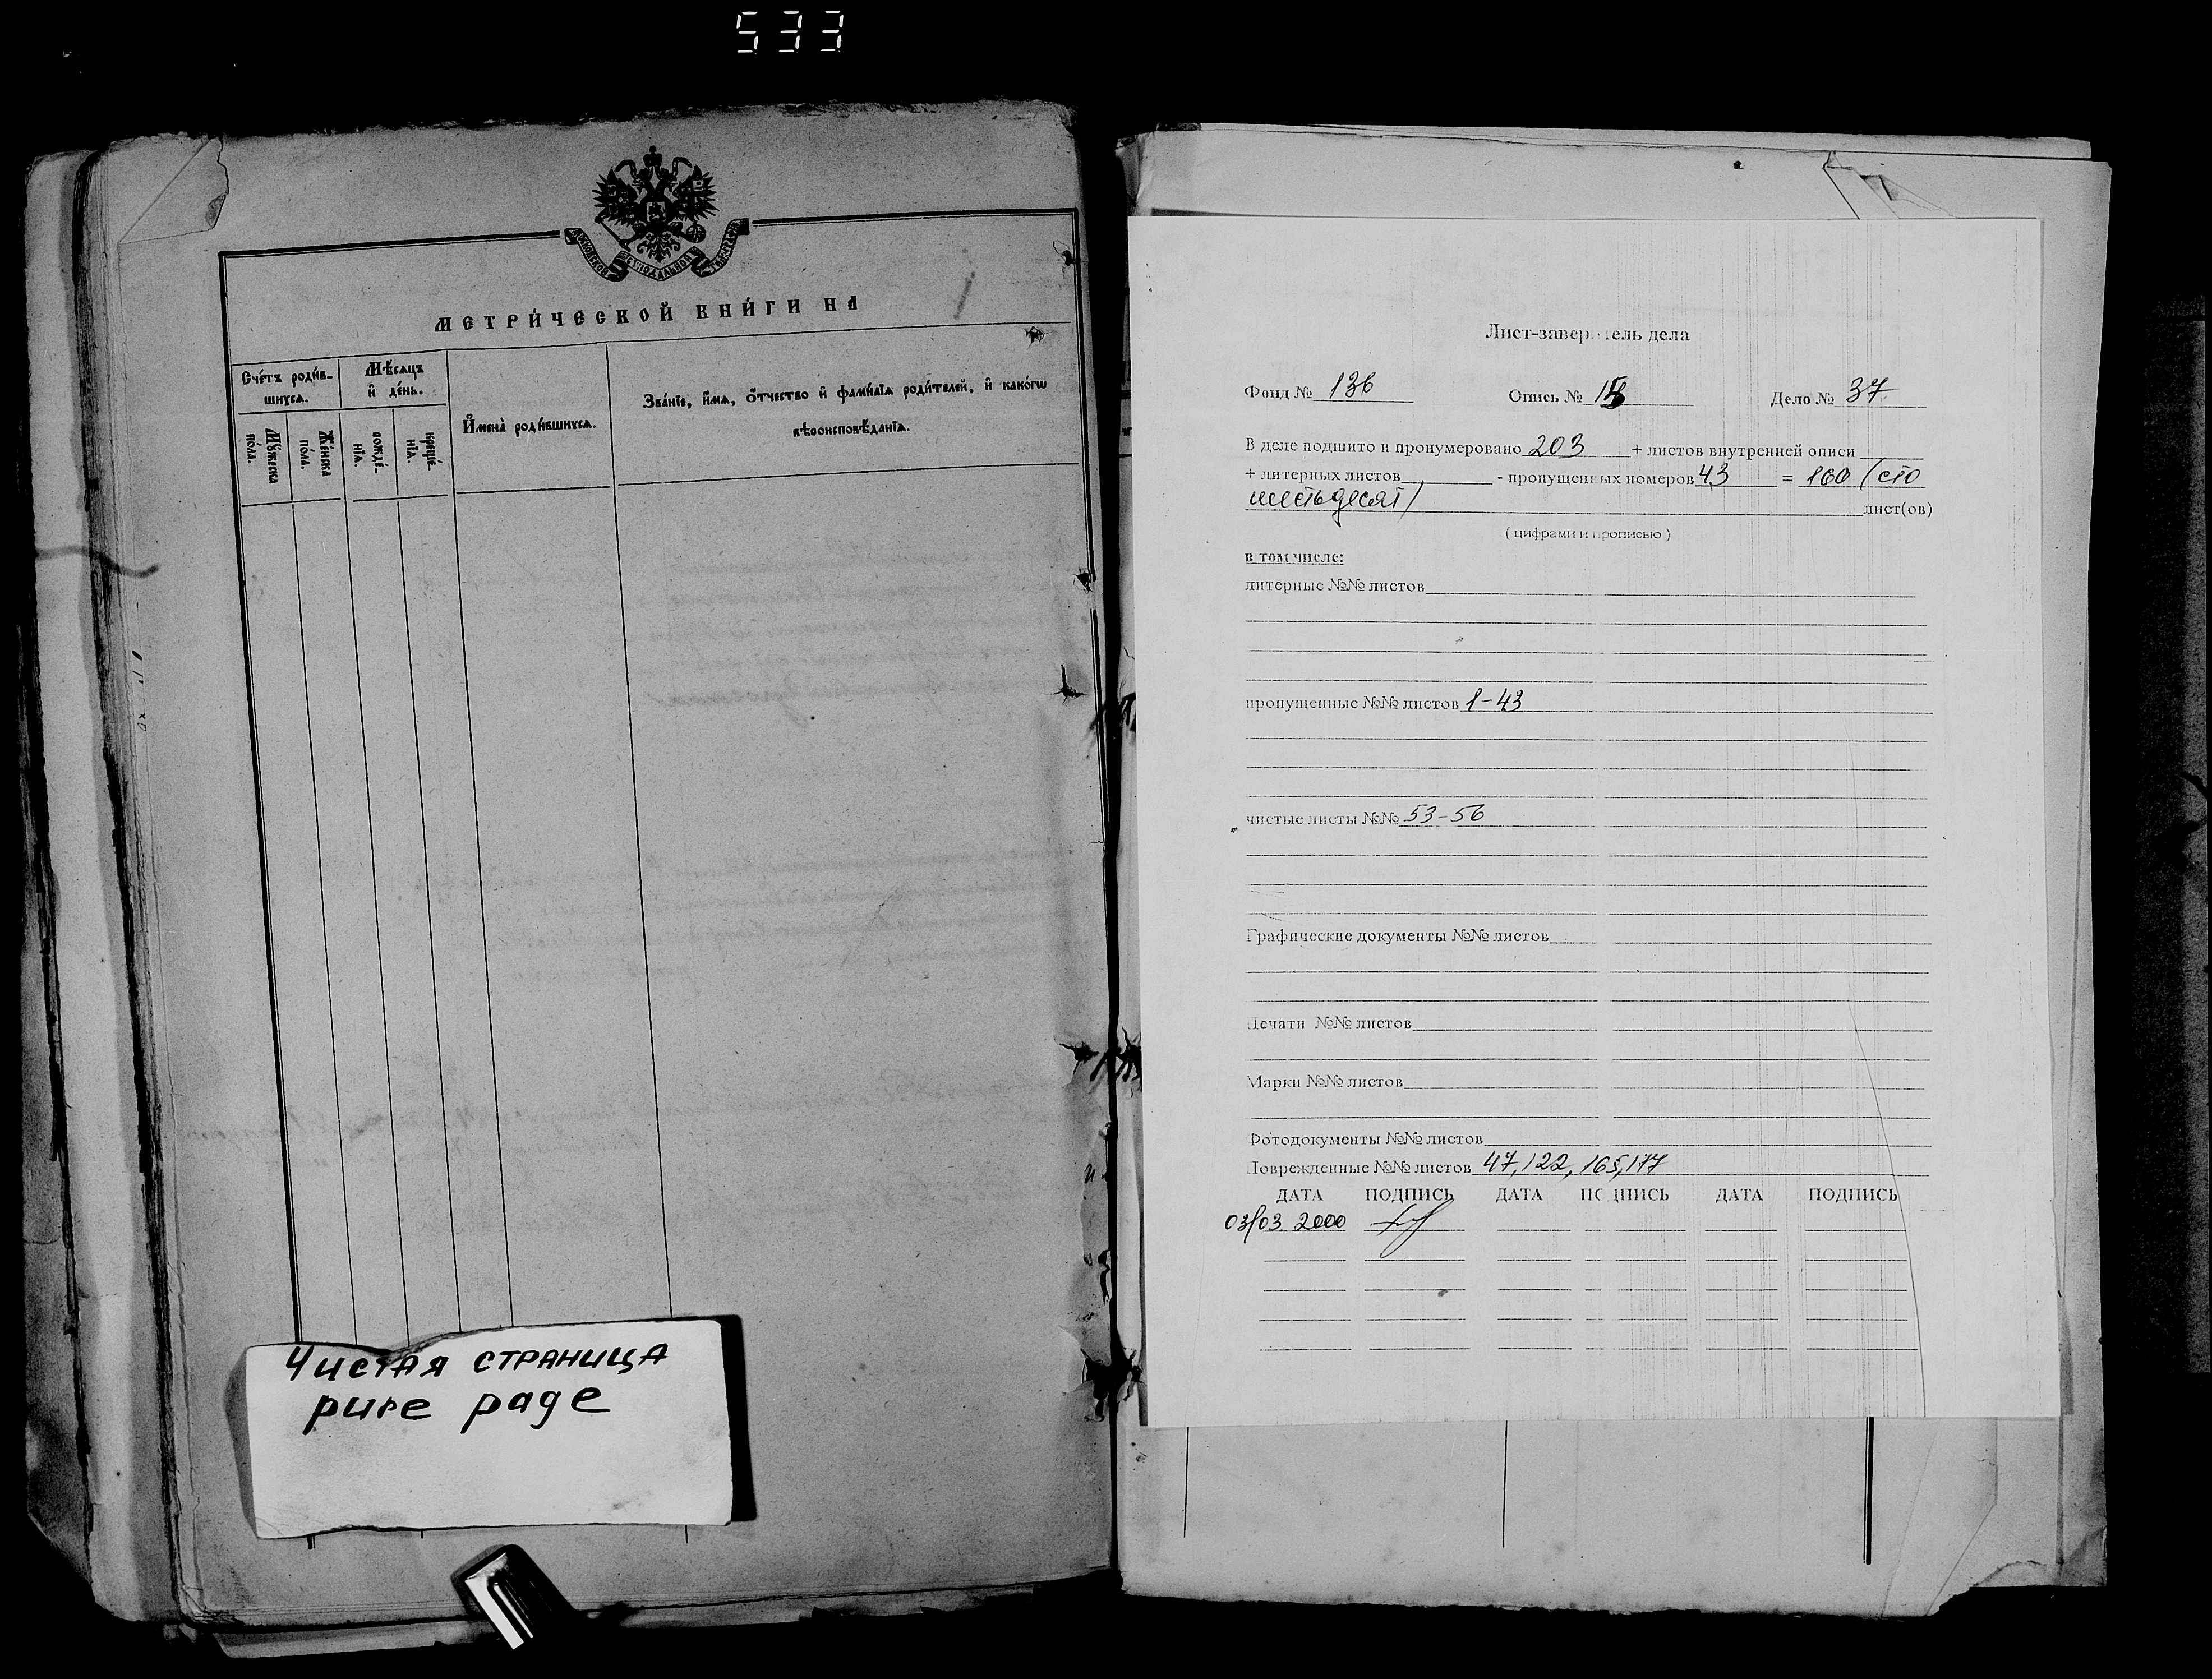 533
МОСКОВСКОЙ СѴНОДАЛЬНОЙ ТИПОГРАФІИ
МЕТРИ́ЧЕСКОЙ КНИ́ГИ НА
Сче́тъ роди́в-
шихсѧ.
Мѣ́сѧцъ
и҆ де́нь.
Мꙋ́жеска
по́ла.
Же́нска
по́ла.
рожде́-
нїѧ.
креще́-
нїѧ.
И҆мена̀ роди́вшихсѧ.
Зва́нїе, и҆́мѧ, ѻ҆́тчество и҆ фами́лїѧ роди́телей, и҆ како́гѡ
вѣроисповѣ́данїѧ.
Чистая страница
pure page
Лист-заверитель дела
Фонд № 136 Опись № Дело № 37
В деле подшито и пронумеровано 203 + листов внутренней описи
+ литерных листов - пропущенных номеров 43 = 160 (сто
шестьдесят) лист(ов)
( цифрами и прописью )
в том числе:
литерные №№ листов
пропущенные №№ листов 1-43
чистые листы №№ 53-56
Графические документы №№ листов
Печати №№ листов
Марки №№ листов
Фотодокументы №№ листов
Поврежденные №№ листов 47, 122, 165, 177
ДАТА ПОДПИСЬ ДАТА ПОДПИСЬ ДАТА ПОДПИСЬ
03/03 2000